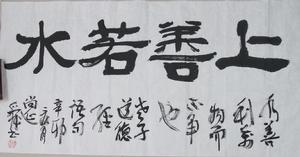 上善若水
水善
利万
物而
不争
也
老子
道德
经
语句
辛卯